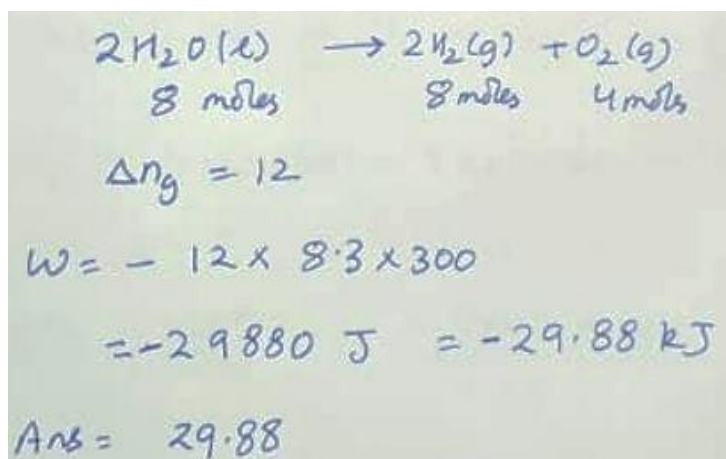 2H₂O(l) → 2H₂(g) + O₂(g)
8 moles 8 moles 4 mols
Δng = 12
W = - 12 × 8.3 × 300
= -29880 J = -29.88 kJ
Ans = 29.88